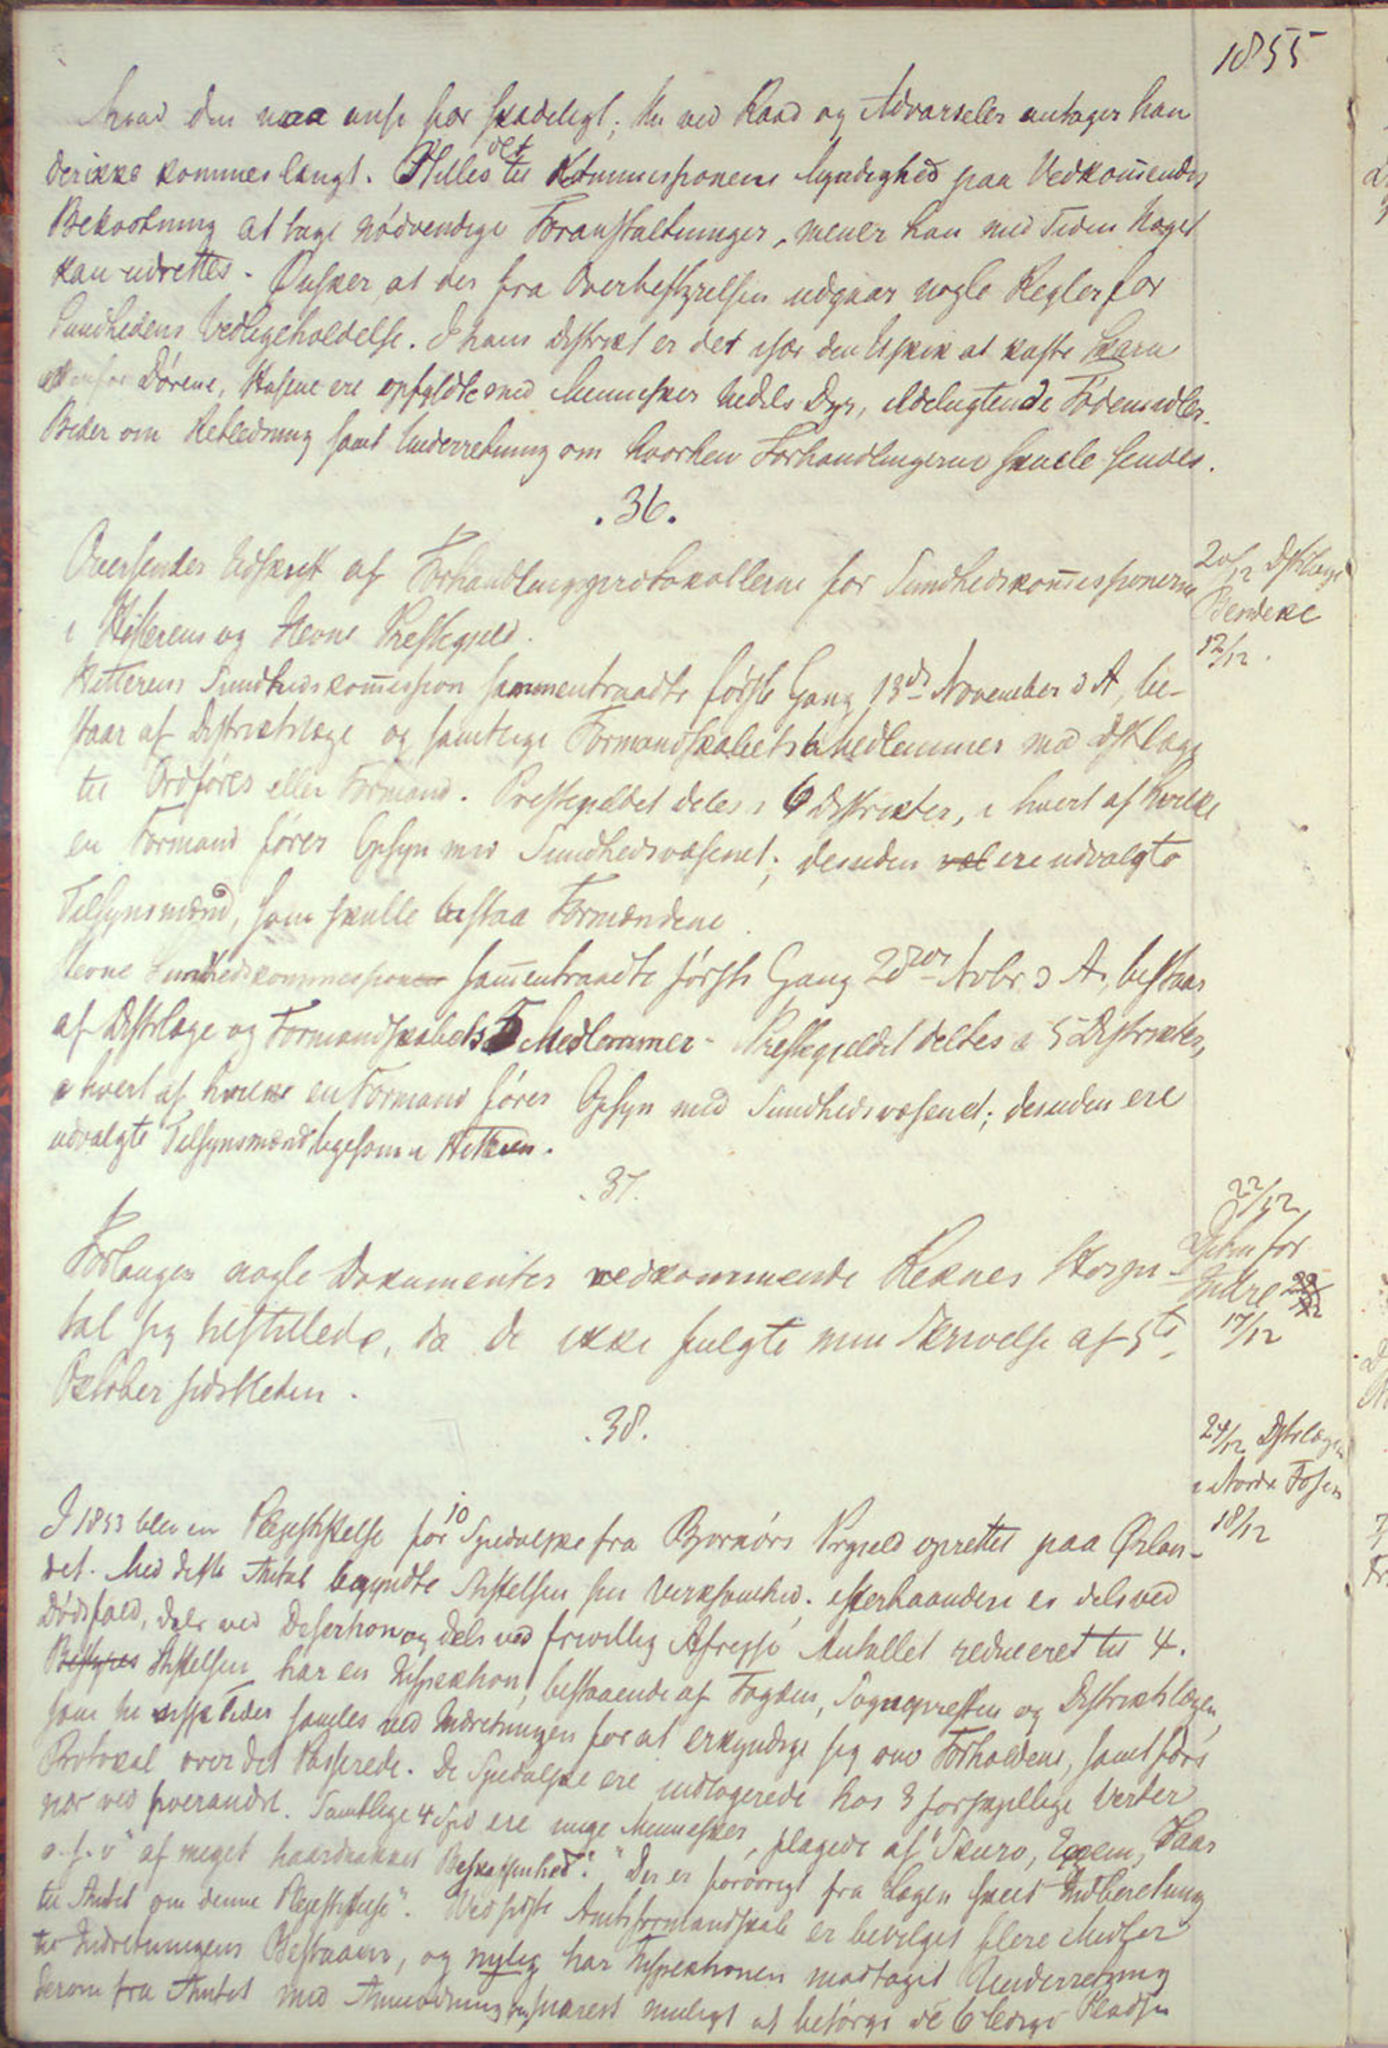 1855
hvad den maa anse for skadeligt; thi ved Raad og Advarseler antager han
der ikke kommes langt. Stilles det til Kommissionens Myndighed paa Vedkommendes
Bekostning at tage nødvendige Foranstaltninger, mener han med Tiden Noget
kan udrettes. Ønsker, at der fra Overbestyrelsen udgaar nogle Regler for
Sundhedens Vedligeholdelse. I hans Distrikt er det især den Uskik at kaste Skarn
udenfor Dørene, Husene ere opfyldte med Mennesker tildels Dyr, ildelugtende Fødemidler.
Beder om Veiledning samt Underretning om hvorhen Forhandlingerne skulle sendes.
.36.
Oversender Udskrift af Forhandlingsprotokollerne for Sundhedskommissionerne
i Hitterens og Hevne Prestegjeld.
20/12 Distslæge
Bendeke
12/12.
Hitterens Sundhedskommission sammentraadte første Gang 13de November d A, be-
staar af Distriktslæge og samtlige Formandskabets 6 Medlemmer med Distlæge
til Ordfører eller Formand. Prestegjeldet deles i 6 Distrikter, i hvert af hvilke
en Formand fører Opsyn med Sundhedsvæsenet; desuden ere udvalgte
Tilsynsmænd, som skulle bistaa Formændene.
Hevne Sundhedskommission sammentraadte første Gang 28de Novbr d A, bestaar
af Distrlæge og Formandskabets 5 Medlemmer. Prestegjeldet deltes i 5 Distrikter,
i hvert af hvilke en Formand fører Opsyn med Sundhedsvæsenet; desuden ere
udvalgte Tilsynsmænd ligesom i Hitteren.
.37.
Forlanger nogle Dokumenter vedkommende Reknes Hospi-
tal sig tilstillede, da de ikke fulgte min Skrivelse af 5te
Oktober sidstleden.
22/12
for
Indre
17/12
.38.
24/12 Distrlægen
i Nordre Fosen
18/12
I 1853 blev en Pleiestiftelse for 10 Spedalske fra Bjørnørs Prgjeld oprettet paa Ørlan-
det. Med dette Antal begyndte Stiftelsen sin Virksomhed; efterhaanden er dels ved
Dødsfald, dels ved Desertion og dels ved frivillig Afreise Antallet reduceret til 4.
Bestyres Stiftelsen har en Inspektion, bestaaende af Fogden, Sognepresten og Distriktslægen,
som til visse Tider samles ved Indretningen for at erkyndige sig om Forholdene, samt fører
Protokol over det Passerede. De Spedalske ere indlogerede hos 3 forskjellige Verter
nær ved hverandre. Samtlige 4 Sped ere unge Mennesker, plagede af "Skurv, Exem, Saar
o.s.v" af meget haardnakket Beskaffenhed." "Der er forøvrigt fra Lægen skeet Indberetning
til Amtet om denne Pleiestiftelse". Ved sidste Amtsformandskab er bevilget flere Midler
til Indretningens Bestaaen, og nylig har Inspektionen modtaget Underretning
derom fra Amtet med Anmodning om snarest muligt at besørge de 6 ledige Pladse